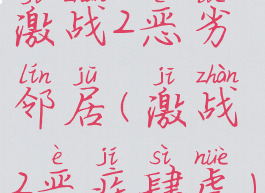 激战2恶劣
lín jū jī zhàn
邻居(激战
è jí sì nüè
2恶疾肆虐)